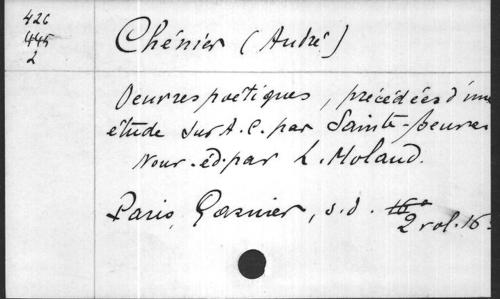 426
445
2
Chénier (André)
Oeuvres poétiques, précédées d'une
étude sur A. C. par Sainte-Beuve
Nouv. éd. par L. Moland.
Paris, Garnier, s.d. 16°
2 vol. 16.